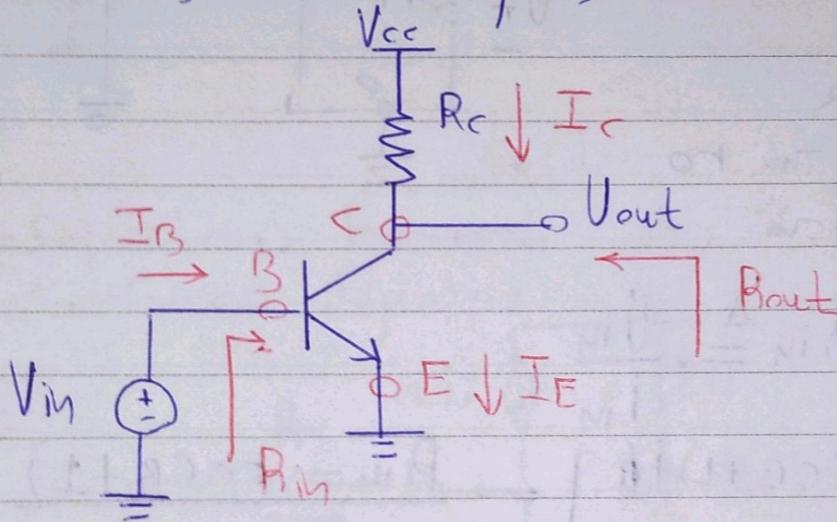 Vcc
Rc
Ic
C
Vout
IB
B
Rout
Vin
+
-
E
IE
Rin